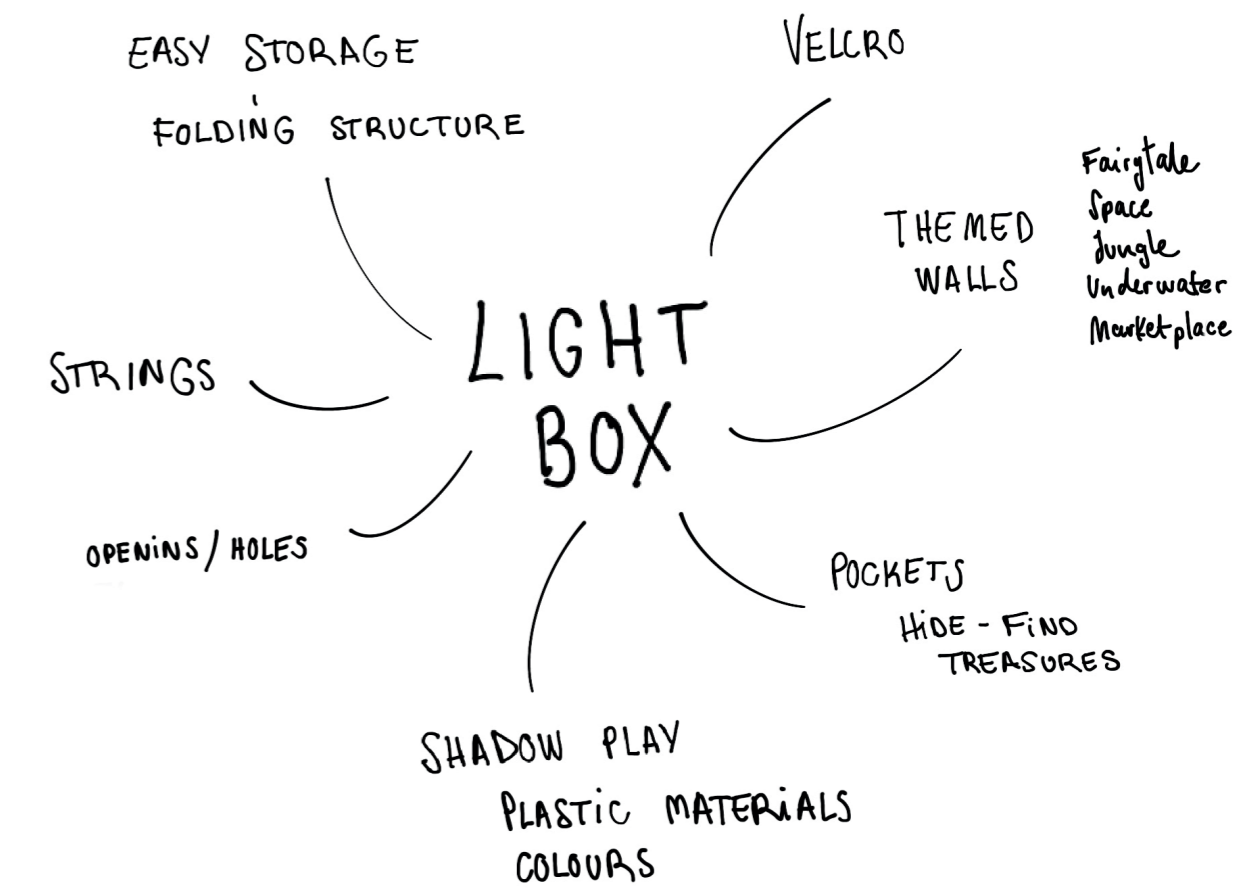 EASY STORAGE
FOLDING STRUCTURE
VELCRO
THEMED
WALLS
Fairytale
Space
Jungle
Underwater
Marketplace
LIGHT
BOX
STRINGS
OPENINS/HOLES
POCKETS
HIDE - FIND
TREASURES
SHADOW PLAY
PLASTIC MATERIALS
COLOURS